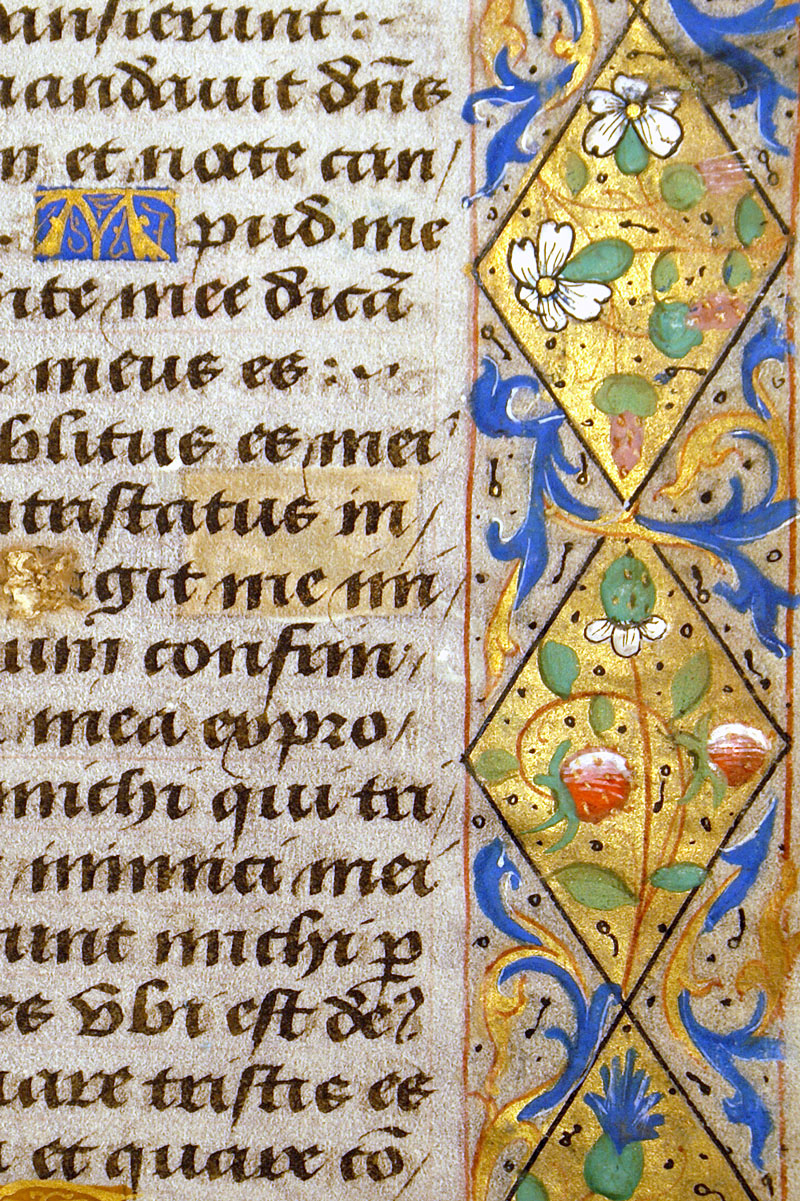 ansierunt :~
andavit dñs
et nocte can/
Apud me
ite mee dicã
meus es : ~
blitus es mei
tristatus in/
git me ini/
um confrin/
mea expro/
michi qui tri/
inimici mei
unt michi p
es Vbi est de?
uare tristis es
et quare cõ